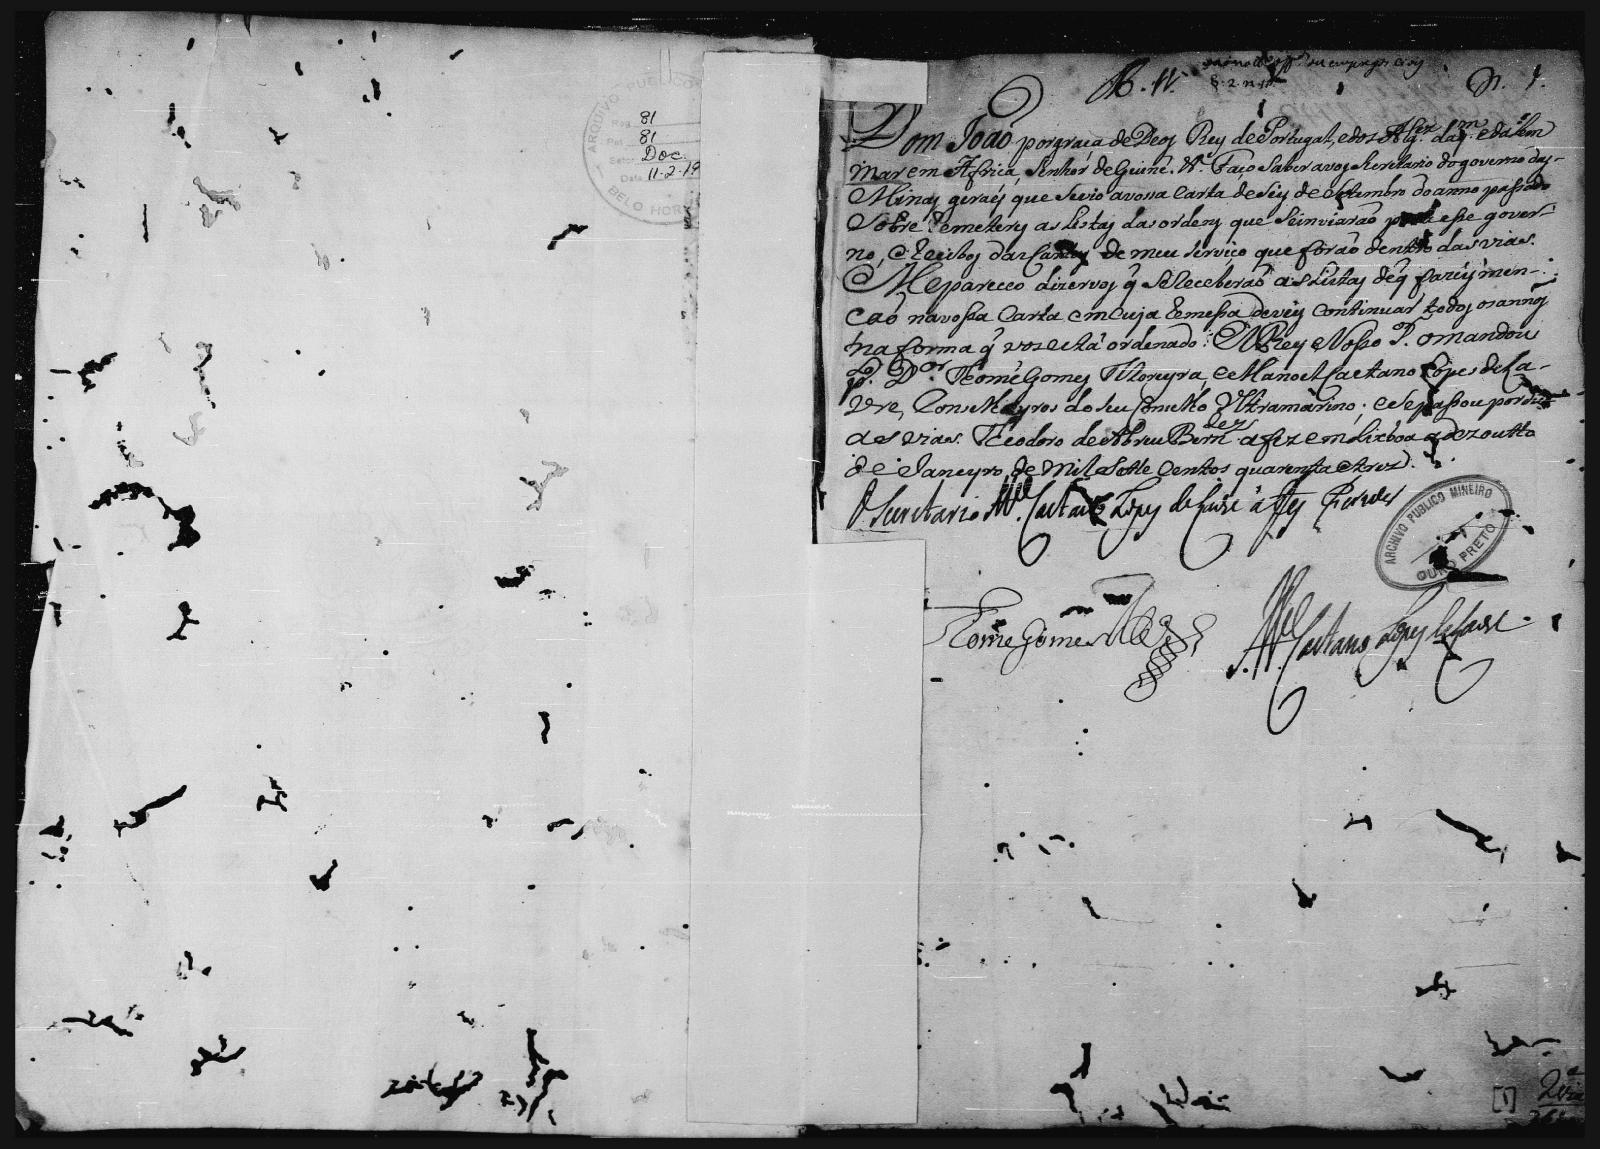 ARQUIVO PUBLICO
BELO HORI
Reg. 81
Pat. 81
Setor Doc.
Data 11-2-19
N. 1.
§. 2. n.
Dom João por graça de Deos Rey de Portugal, e dos Alg.es daq.m e dalem
mar em Africa, Senhor de Guiné. &.ª Faço saber a vos Secretario do governo das
Minas geraes que se vio a vossa carta de seis de Setembro do anno passado
Sobre remeteres as listas das ordens que se inviarão para esse gover-
no, e Recibos das Cartas de meu serviço que forão dentro das vias.
Me pareceo dizervos q se receberaõ as listas de q fazeis men-
caõ na vossa carta em cuja remessa deveis continuar todos os annos
na forma q vos está ordenado. El Rey Nosso S. o mandou
p. D.or Thomé Gomes Moreyra, e Manoel Caetano Lopes de La-
vre, Conselheyros do seu Conselho Ultramarino; e se passou por du-
as vias. Theodoro de Abreu Bernardez a fez em Lixboa a dezoutto
de Janeyro de Mil e Sette centos quarenta e trez.
O Secretario M.el Caetano Lopes de Lavre a fez escrever
ARCHIVO PUBLICO MINEIRO
OURO PRETO
Tome Gomes
M.el Caetano Lopes de Lavre.
[1]
2.ª via